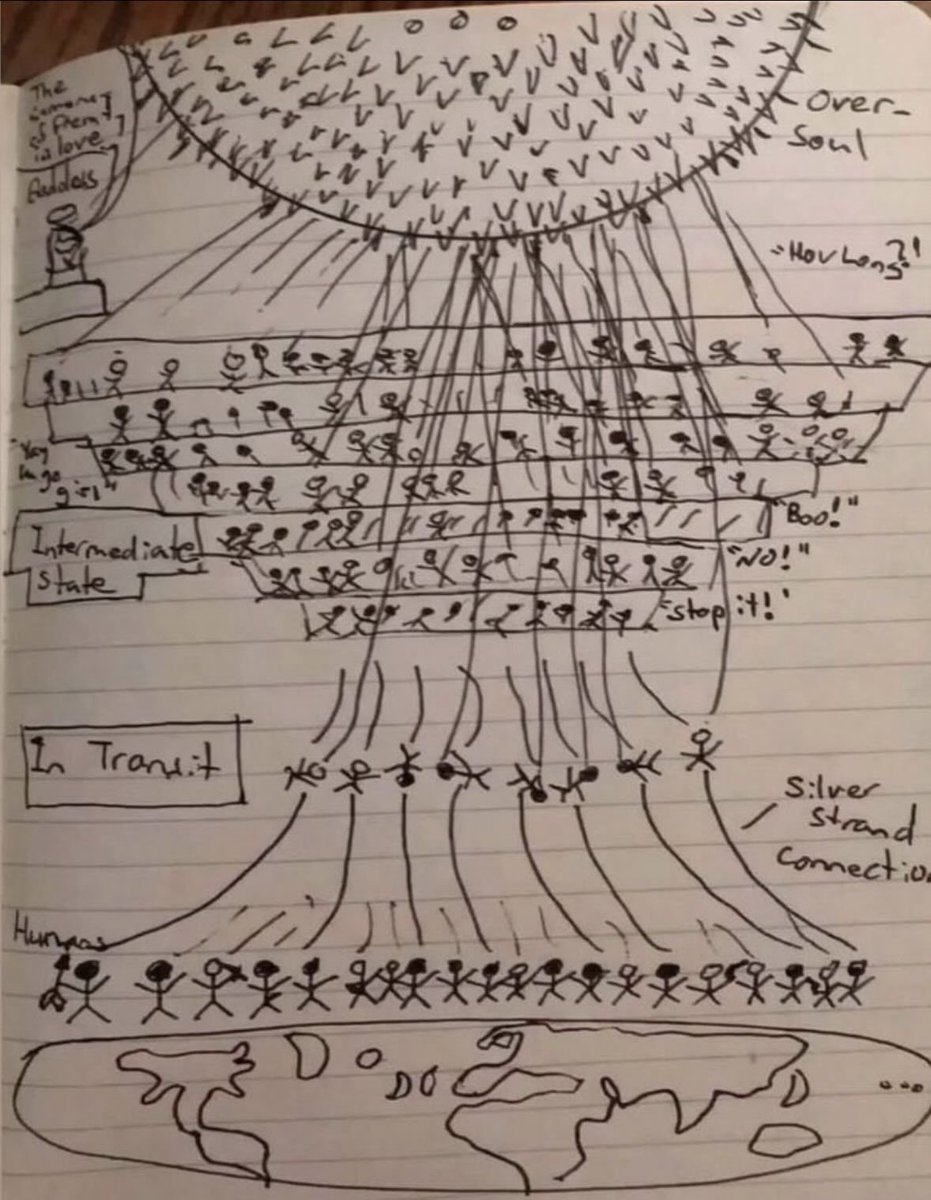 The
in love
Over-
Soul
"How Long?!"
"Yay
girl"
"Boo!"
Intermediate
State
"NO!"
"Stop it!"
In Transit
Silver
Strand
Connection
Humans